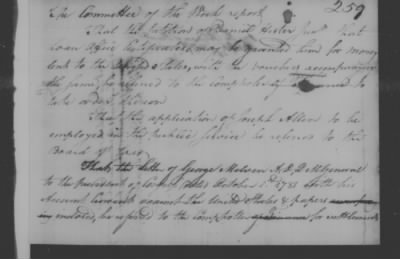 259
The Committee of the Week report
That the Petition of Daniel Hester Junr that
Loan Office Certificates may be granted him for money
lent to the United States, with the vouchers accompanying
the same, be referred to the Comptroller to
take order thereon
That the application of Joseph Allen to be
employed in the public service be referred to the
Board of Treasy
That the letter of George Melven A. D. Q M General
to the President of Congress dated October 1st 1781 with his
Account Current against the United States & papers
inclosed, be referred to the Comptroller for settlement